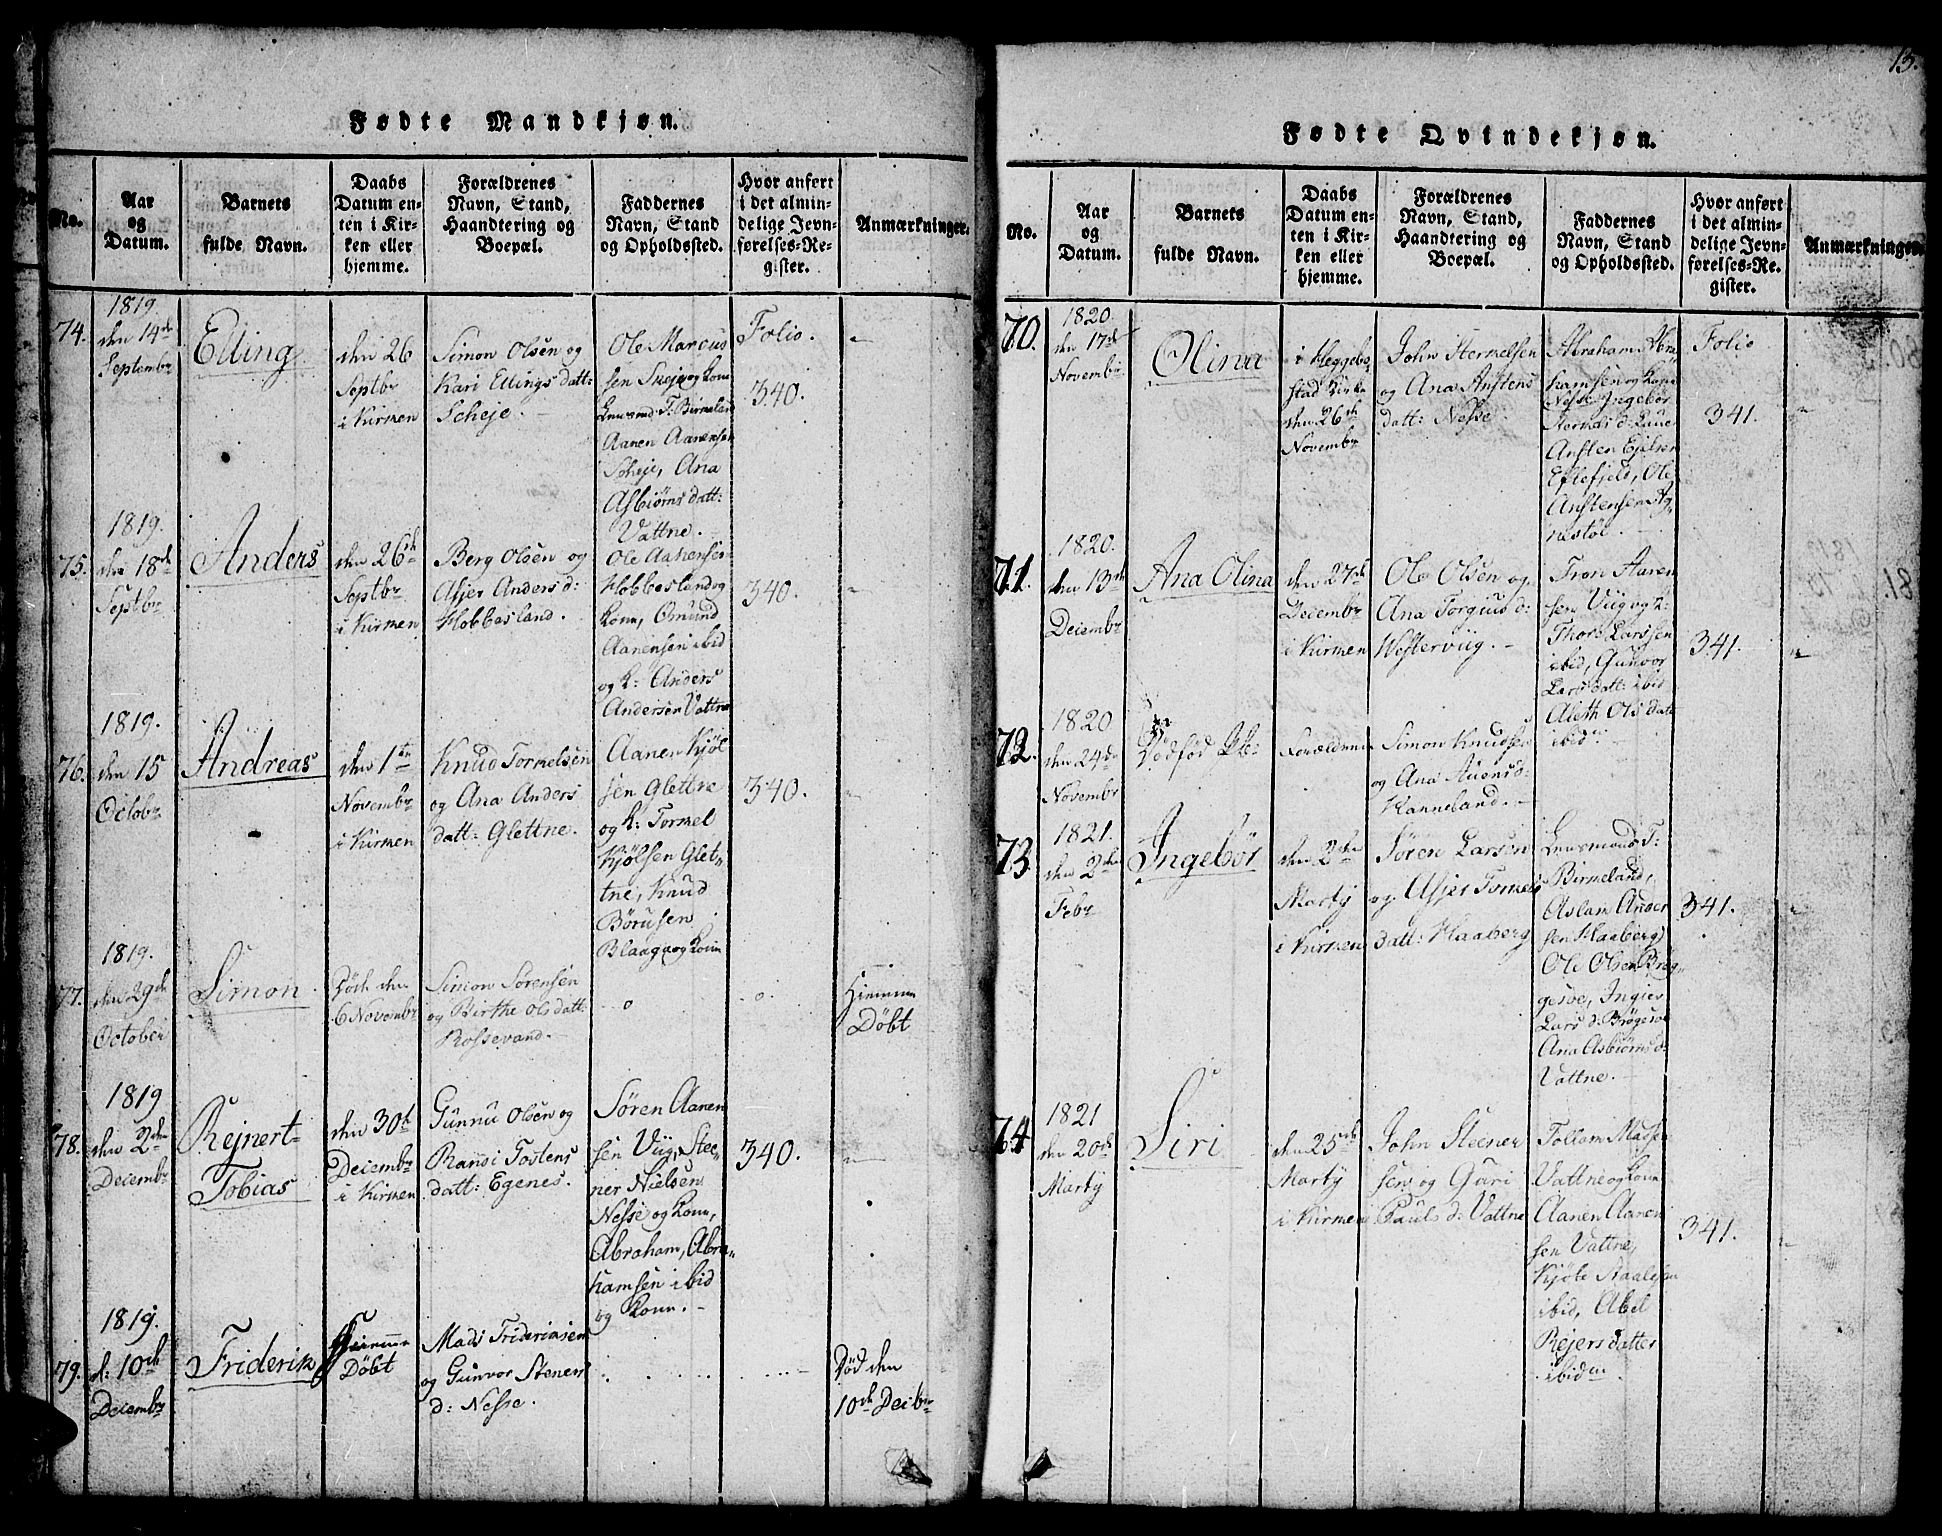 Fødte Mandkjøn.
No.
Aar
og
Datum.
Barnets
fulde Navn.
Daabs
Datum en-
ten i Kir-
ken eller
hjemme.
Forældrenes
Navn, Stand,
Haandtering og
Boepæl.
Faddernes
Navn, Stand
og Opholdssted.
Hvor anført
i det almin-
delige Jevn-
førelses-Re-
gister.
Anmærkninger.
74.
1819.
den 14de
Septembr
Elling
den 26
Septbr
i Kirken
Simon Olsen og
Kari Ellings datt:
Scheje.
Ole Marcus
sen Skeje og Kone
Lensmand T: Birkeland
Aanen Aanensen
Scheje, Ana
Asbiørns datt:
Vattne.
Folio.
340.
75.
1819.
den 18de
Septbr
Anders
den 26de
Septbr
i Kirken
Berg Olsen og
Asjer Anders d:
Hobbesland.
Ole Aanensen
Hobbesland og
Kone, Omund
Aanensen ibid
og K: Anders
Andersen Vattne
340.
76.
1819.
den 15
Octobr
Andreas
den 1te
Novembr
i Kirken
Knud Tormelsen
og Ana Anders
datt: Glettne.
Aanen Kjøl
sen Glettne
og K: Tormel
Kjølsen Glet-
tne, Knud
Børusen
Blaaga og Kone
340.
77.
1819.
den 29de
October
Simon
Døde den
6 Novembr
Simon Sørensen
og Birthe Ols datt:
Rossevand.
o
o.
Hiemme
Døbt
78.
1819
den 2den
Decembr
Rejnert
Tobias
den 30te
Decembr
i Kirken
Gunnu Olsen og
Ranni Tostens
datt: Egenes.
Søren Aanen
sen Viig, Stee-
ner Nielsen
Nesse og Kone,
Abraham, Abra-
hamsen ibid
og Kone.
340.
79.
1819.
d: 10de
Decembr
Friderik
Hiemme
Døbt
Mads Friderichsen
og Gunvor Steners
d: Nesse.
Død den
10de Decbr
13.
Fødte Qvindekjøn.
No.
Aar
og
Datum.
Barnets
fulde Navn.
Daabs
Datum en-
ten i Kir-
ken eller
hjemme.
Forældrenes
Navn, Stand,
Haandtering og
Boepæl.
Faddernes
Navn, Stand
og Opholdssted.
Hvor anført
i det almin-
delige Jevn-
førelses-Re-
gister.
Anmærkninger.
70.
1820.
den 17de
Novembr
Olina
i Heggebo-
stad Kirke
den 26de
Novembr
John Stermelsen
og Ana Anstens
datt: Nesse
Abraham Abra
hamsen og Kone
Nesse, Ingebor
d: Laue
Ansten Ejelsen
Eftefjeld, Ole
Anstensen
nestøl
Folio
341.
71.
1820.
den 13de
Decembr
Ana Olina
den 27de
Decembr
i Kirken
Ole Olsen og
Ana Torgius d:
Westerviig.
Tron Aanen
sen Viig og K:
Thore Larssen
ibid, Gunvor
Lars datt: ibid
Aleth Ols datt
ibid
341.
72.
1820
den 24de
Novembr
Dødfød
Forældrene
Simon Knudsen
og Ana Auens d:
Hanneland.
73.
1821.
den 2den
Febr
Ingebør
den 2den
Martij
i Kirken
Søren Larsen
og Asjer Tormels
datt: Haaberg
Lensmand T:
Birkeland,
Aslam Ander
sen Haaberg
Ole Olsen Brøg-
gesøe, Ingier
Lars d: Brøgesøe
Ana Asbiørns d:
Vattne.
341.
74
1821
den 20de
Martij
Siri
den 25de
Martij
i Kirken
John Steener
sen og Guri
Pauls d: Vattne
Tollom Madsen
Vattne og Kone
Aanen Aanen
sen Vattne,
Kjøle Staalesen
ibid, Abel
Rejers datter
ibidm
341.